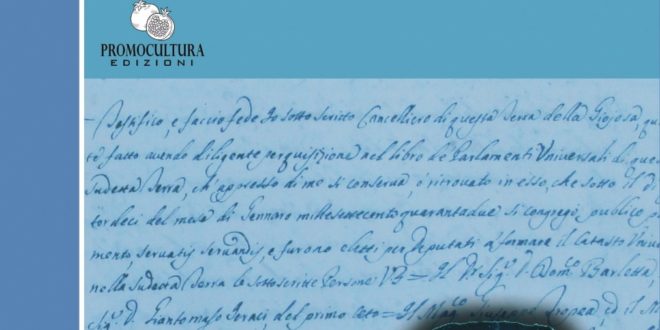 PROMOCULTURA
EDIZIONI
Testifico, e faccio fede Io sottoscritto Cancelliero di questa Terra della Gioiosa,
fatto avendo diligente perquisizione nel libro de Parlamenti Universali di
sudetta Terra, ch'appresso di me si conserva, ò ritrovato in esso, che sotto il dì
tordeci del mese di Gennaro millesettecento quarantadue si congregò publico
mento, servatis servandis, e furono eletti per Deputati a formare il Catasto
nella sudetta Terra le sottoscritte Persone Il Barletta,
D. Giantomaso Ieraci, del primo ceto = Il ed il